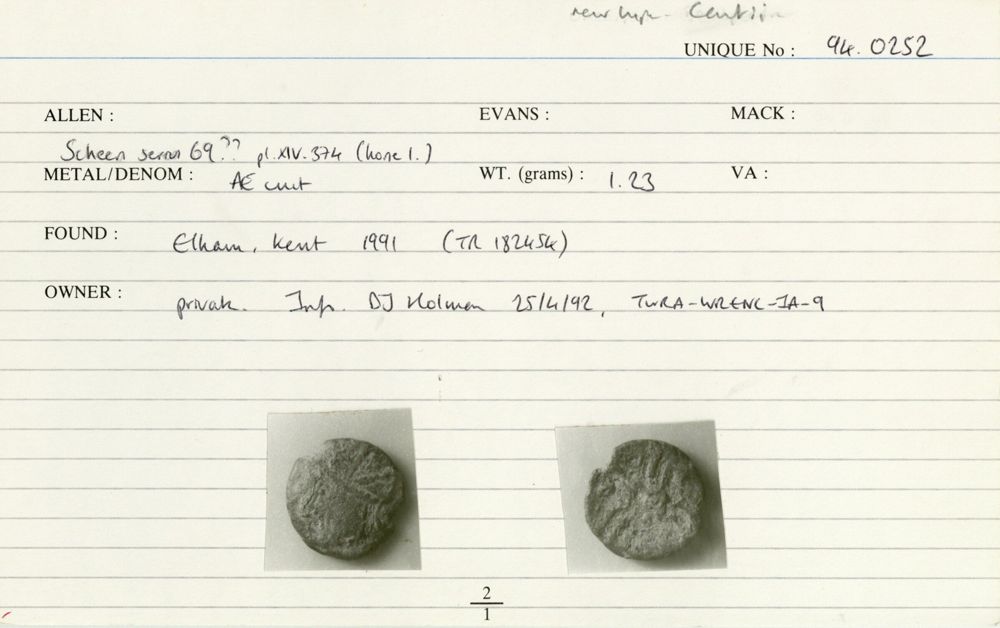 new type. Cantii
UNIQUE No : 94.0252
ALLEN : EVANS : MACK :
Scheers series 69?? pl.XIV.374 (horse l.)
METAL/DENOM : AE unit WT. (grams) : 1.23 VA :
FOUND : Elham, Kent 1991 (TR 182454)
OWNER : private. Inf. DJ Holman 25/4/92, TWRA-WRENC-IA-9
2
1